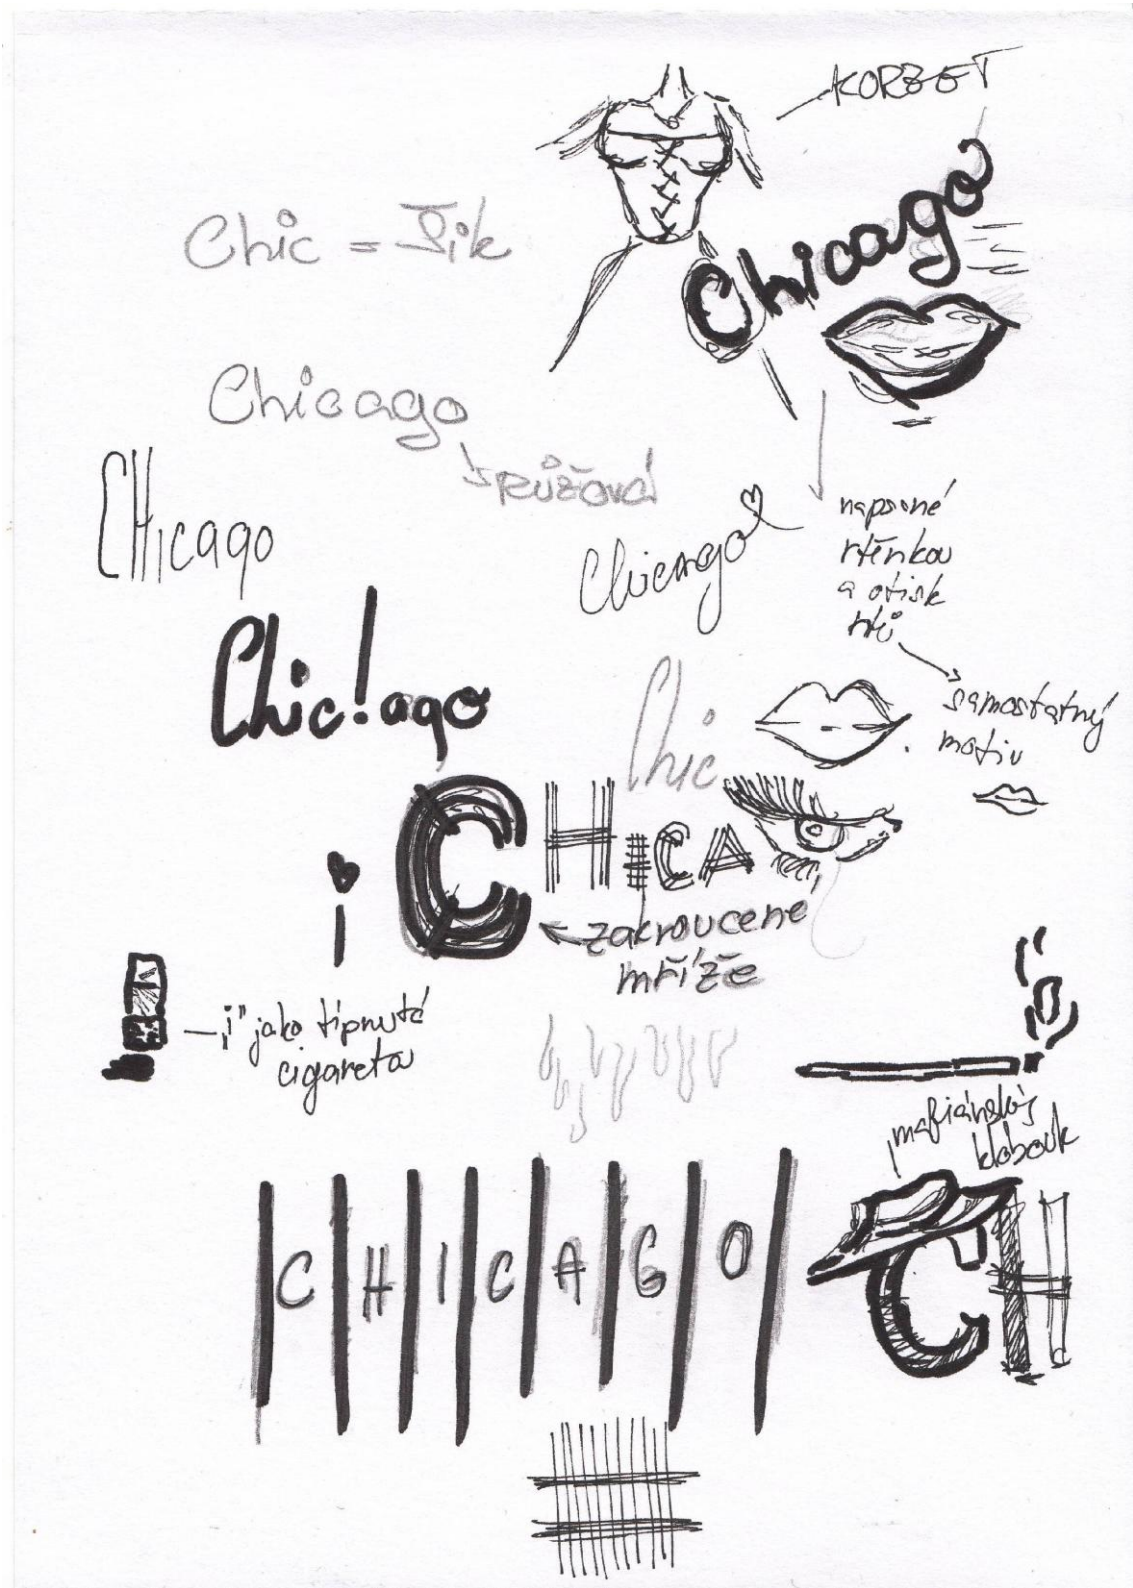 KORZET
Chic = Šik
Chicago
Chicago
růžová
CHicago
Chicago
napsané
rtěnkou
a otisk
rtů
samostatný
motiv
Chic!ago
Chic
CHiCA
i
zakroucené
mříže
"i" jako típnutá
cigareta
mafiánský
klobouk
CHICAGO
CH